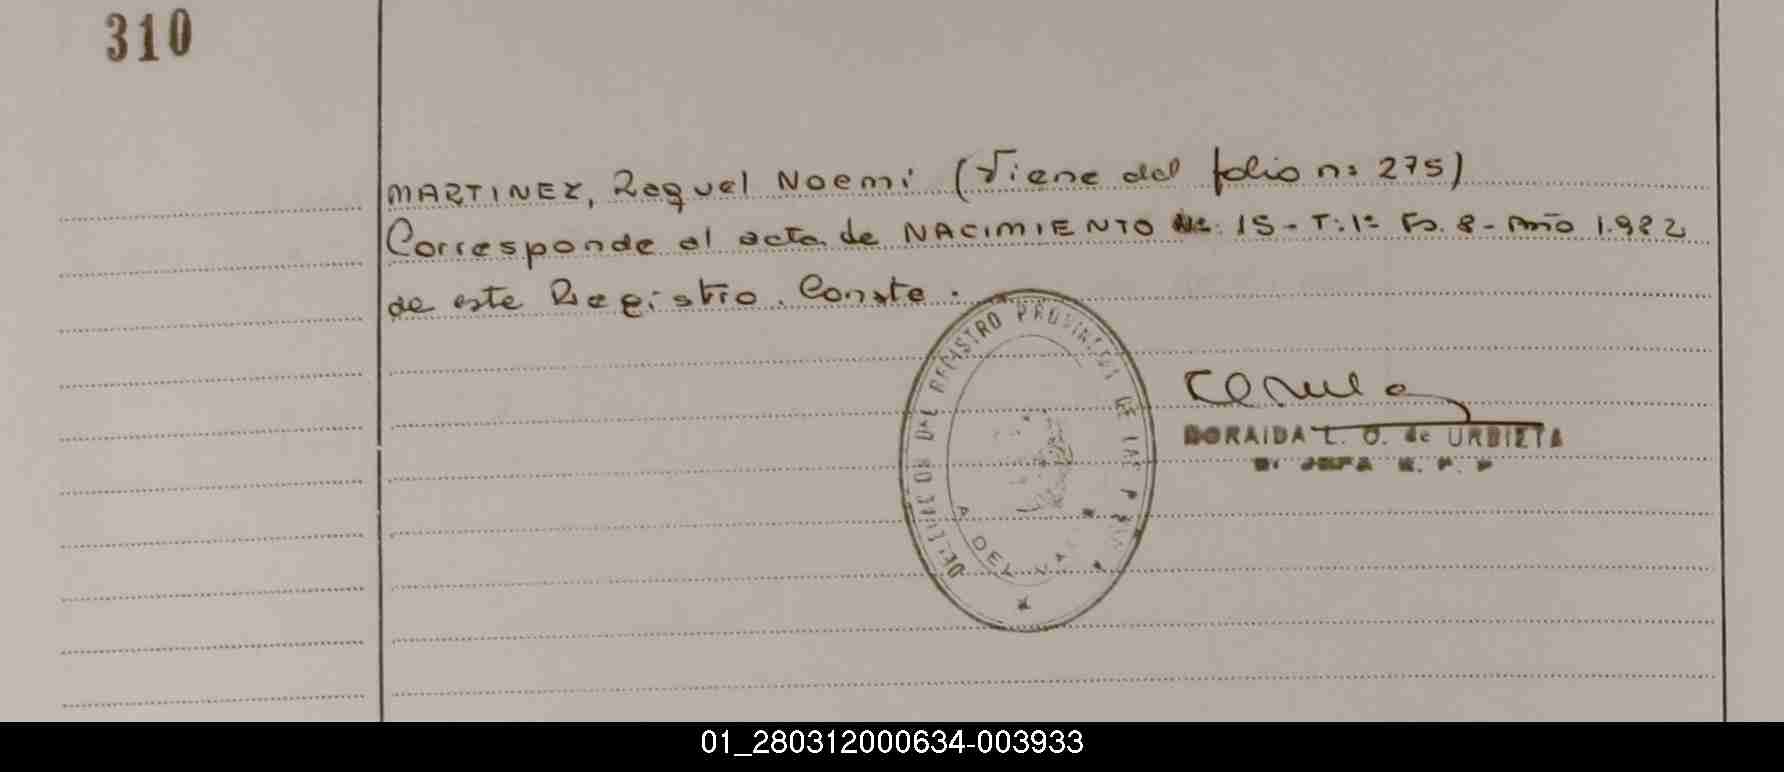 310
MARTINEZ, Raquel Noemi (Viene del folio nº 275)
Corresponde al acta de NACIMIENTO Nº: 15 - T: 1º Fº. 8 - Año 1.982
de este Registro. Conste.
DEL REGISTRO PROVINCIAL DE LAS
DORAIDA L. O. de URBIETA
JEFA
01_280312000634-003933